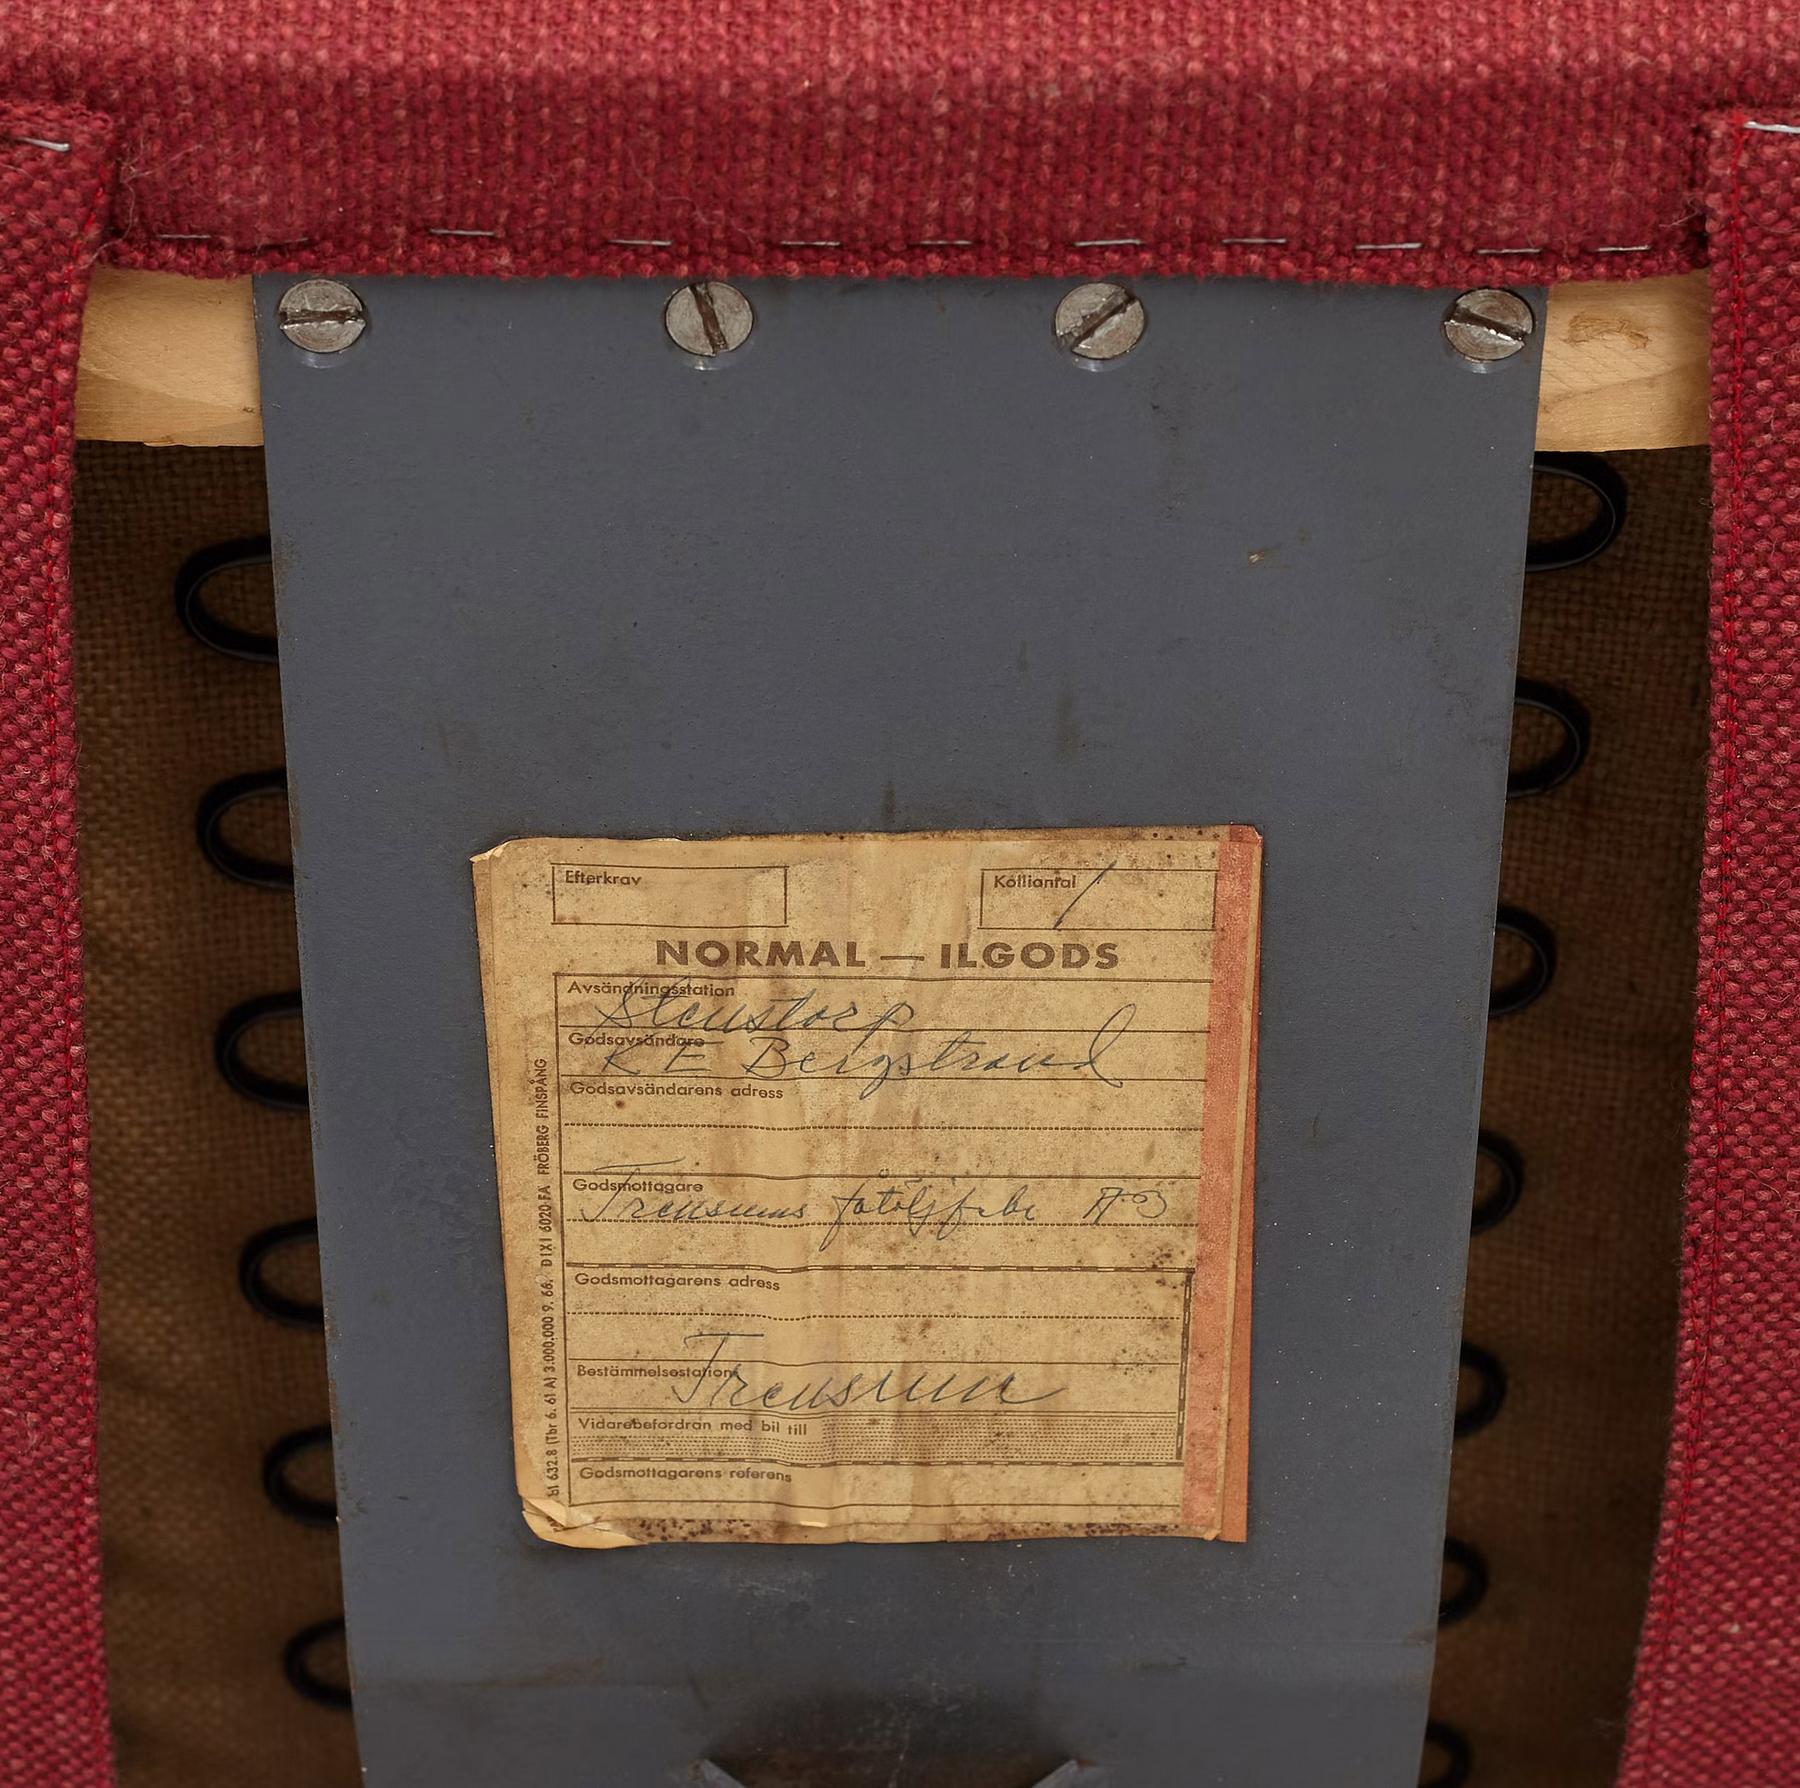 Efterkrav
Kolliantal /
NORMAL — ILGODS
Avsändningsstation
Stenstorp
Godsavsändare
K E Bergstrand
Godsavsändarens adress
Godsmottagare
Trensums fåtöljfabr AB
Godsmottagarens adress
Bestämmelsestation
Trensum
Vidarebefordran med bil till
Godsmottagarens referens
bl 632.8 (Tbr 6. 61 A) 3.000.000 9. 66. DIXI 6020 FA FRÖBERG FINSPÅNG